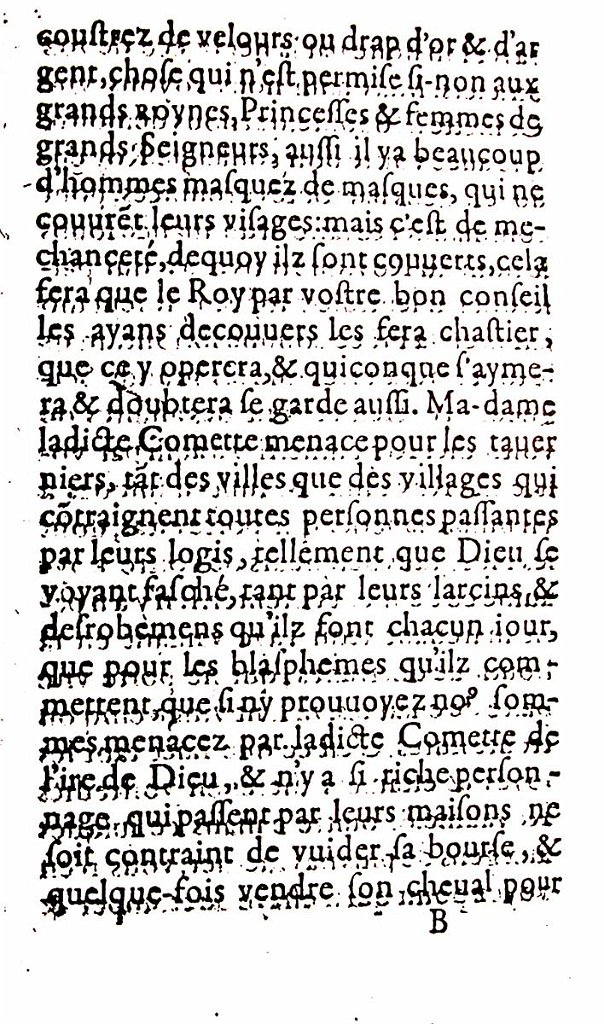 coustrez de velours ou drap d'or & d'ar
gent, chose qui n'eſt permiſe ſi-non aux
grands Roynes, Princeſſes & femmes de
grands Seigneurs, auſſi il ya beaucoup
d'hommes maſquez de maſques, qui ne
couurẽt leurs viſages: mais c'eſt de me-
chanceté, dequoy ilz ſont couuerts, cela
fera que le Roy par voſtre bon conſeil
les ayans decouuers les fera chaſtier,
que ce y operera, & quiconque ſ'ayme-
ra & doubtera ſe garde auſſi. Ma-dame
ladicte Comette menace pour les tauer
niers, tãt des villes que des villages qui
cõtraignent toutes perſonnes paſſantes
par leurs logis, tellement que Dieu ſe
voyant faſché, tant par leurs larcins &
deſrobemens qu'ilz font chacun iour,
que pour les blaſphemes qu'ilz com-
mettent, que ſi n'y prouuoyez noꝰ ſom-
mes menacez par ladicte Comette de
l'ire de Dieu, & n'y a ſi riche perſon-
nage qui paſſent par leurs maiſons ne
ſoit contraint de vuider ſa bourſe, &
quelque-fois vendre ſon cheual pour
B